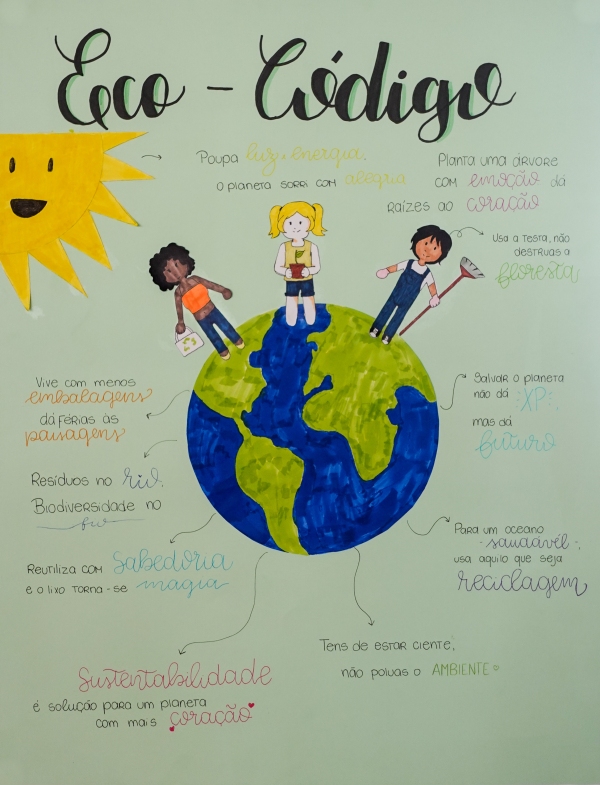 Eco - Código
Poupa luz e energia,
o planeta sorri com alegria
Planta uma árvore
com emoção dá
raízes ao coração
Usa a testa, não
destruas a
floresta
Vive com menos
embalagens
dá férias às
paisagens
Salvar o planeta
não dá XP,
mas dá
futuro
Resíduos no rio,
Biodiversidade no
fio
Reutiliza com Sabedoria
e o lixo torna-se magia
Para um oceano
saudável,
usa aquilo que seja
reciclagem
Tens de estar ciente,
não poluas o AMBIENTE
Sustentabilidade
é solução para um planeta
com mais coração